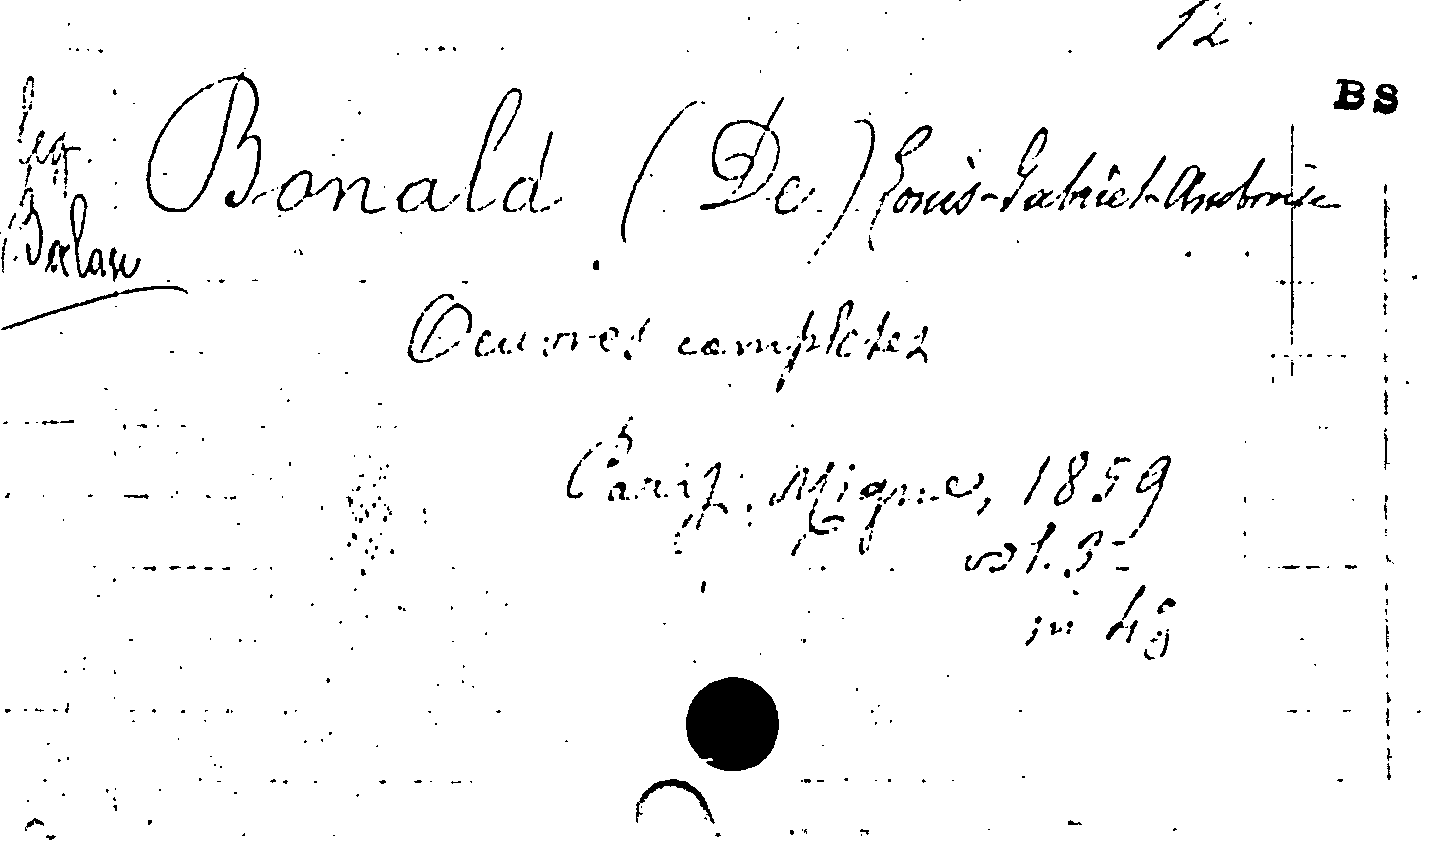 12
BS
Leg.
Bonald (De) Louis-Gabriel-Ambroise
Oeuvres completes
Paris, Migne, 1859
vol. 3 -
in 4º